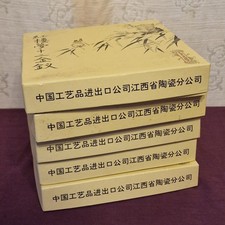 中国工艺品进出口公司江西省陶瓷分公司
中国工艺品进出口公司江西省陶瓷分公司
中国工艺品进出口公司江西省陶瓷分公司
中国工艺品进出口公司江西省陶瓷分公司
中国工艺品进出口公司江西省陶瓷分公司